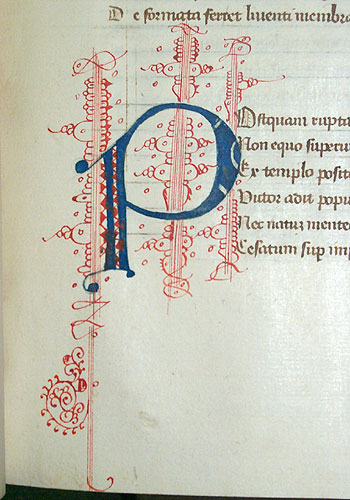 De formata fertet liventi membra
Postquam rupta
Non equo superu
Ex templo posit
Putor adit popu
Nec natur mente
Cesatum sup imp